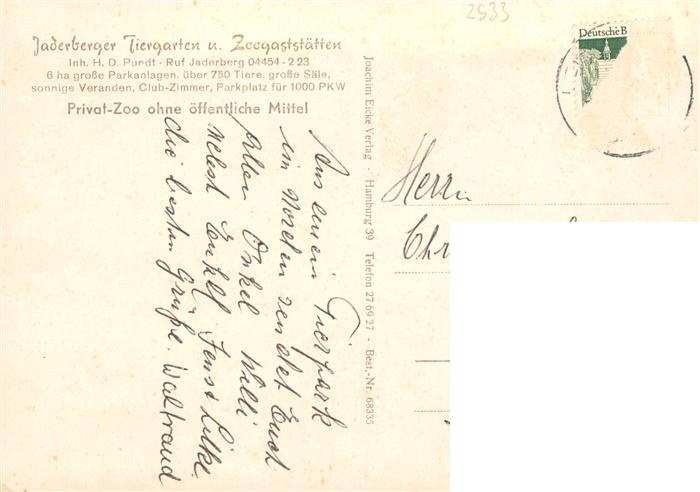 2533
Jaderberger Tiergarten u. Zoogaststätten
Inh. H. D. Pundt · Ruf Jaderberg 04454 - 2 23
6 ha große Parkanlagen, über 750 Tiere, große Säle,
sonnige Veranden, Club-Zimmer, Parkplatz für 1000 PKW
Privat-Zoo ohne öffentliche Mittel
Aus einem Tierpark
im Norden sendet Euch
allen Onkel Willi
nebst Enkel Jens
die besten Grüße. Waltraud
Joachim Eicke Verlag · Hamburg 39 Telefon 27 69 27 · Best.-Nr. 68335
Deutsche B
Herrn
Chr